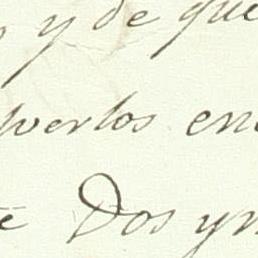 y de que
verlos en
te Dos yn